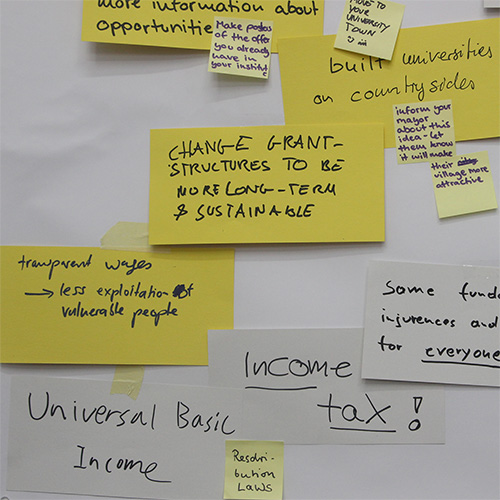 more information about
opportunities
Make posters
of the offer
you already
have in
your institut
MOVE TO
YOUR
UNIVERCITY
TOWN
built universities
on countrysides
inform your
mayor
about this
idea - let
them know
it will make
their
village more
attractive
CHANGE GRANT-
STRUCTURES TO BE
MORE LONG-TERM
& SUSTAINABLE
transparent wages
→ less exploitation of
vulnerable people
Some fund
injurences and
for everyone
Income
tax!
Universal Basic
Income
Resdri-
bution
LAWS